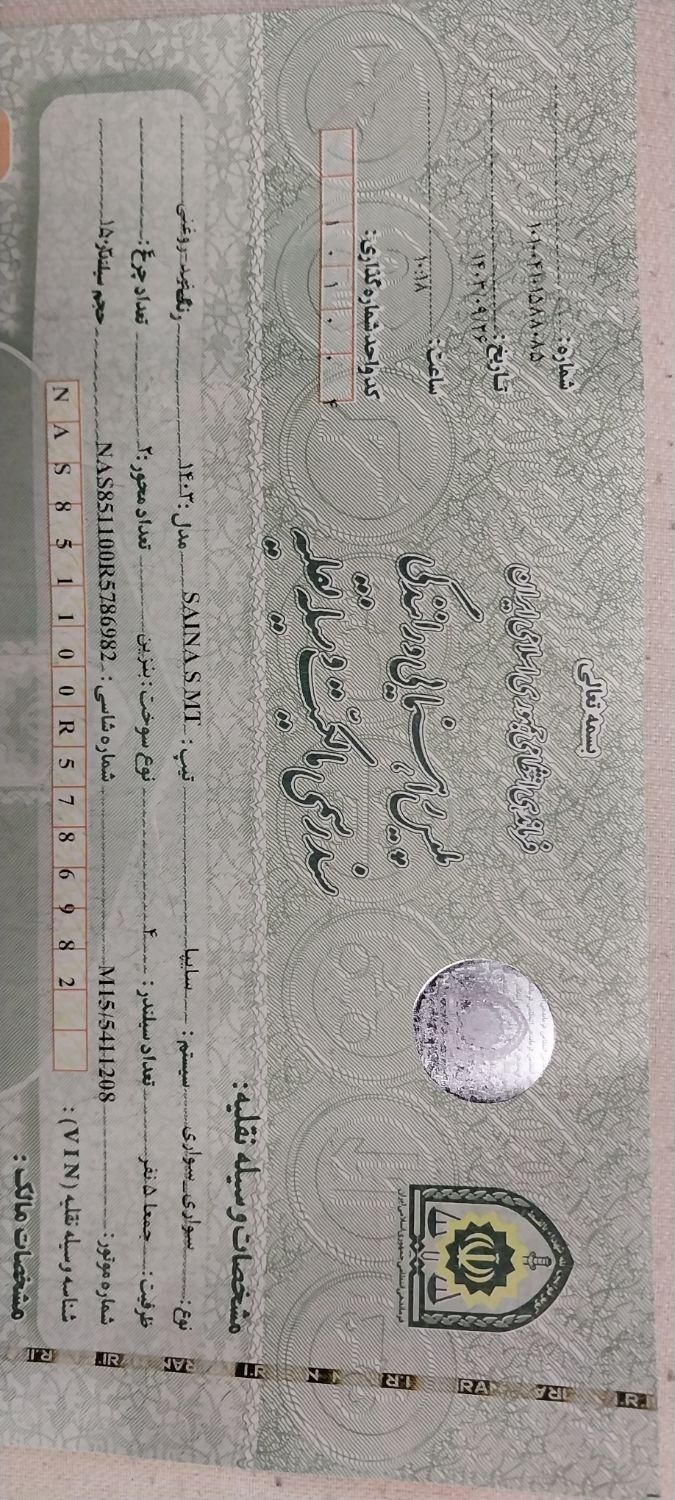 بسمه تعالی
فرماندهی انتظامی جمهوری اسلامی ایران
پلیس راهنمایی و رانندگی
سند رسمی مالکیت وسیله نقلیه
شماره: ۱۰۱۰۰۴۱۰۱۵۸۸۰۸۵
تاریخ: ۱۴۰۳/۰۹/۲۶
ساعت: ۱۰:۱۸
کد واحد شماره گذاری:
۱ ۰ ۱ ۰ ۰ ۴
فرماندهی انتظامی جمهوری اسلامی ایران
مشخصات وسیله نقلیه:
نوع: سواری سواری سیستم: سایپا تیپ: SAINA S MT مدل: ۱۴۰۳ رنگ: روغنی
ظرفیت: جمعا ۵ نفر تعداد سیلندر: ۴ نوع سوخت: بنزین تعداد محور: ۲ تعداد چرخ:
شماره موتور: M15/5411208 شماره شاسی: NAS851100R5786982 حجم سیلندر: ۱۵
شناسه وسیله نقلیه (VIN): N A S 8 5 1 1 0 0 R 5 7 8 6 9 8 2
مشخصات مالک:
I.R. IRAN I.R. IRAN I.R.